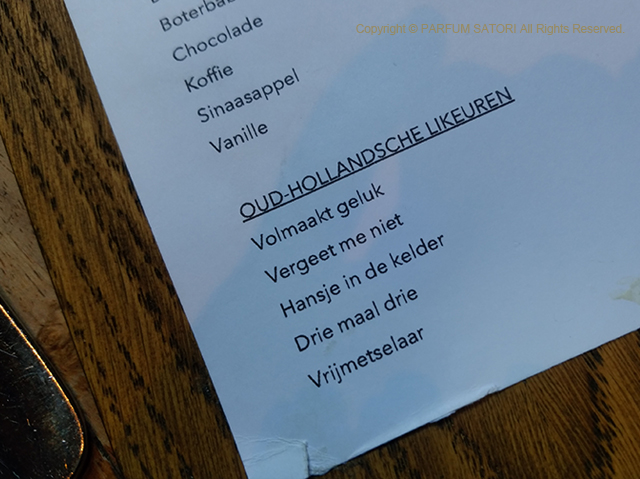 Copyright © PARFUM SATORI All Rights Reserved.
Chocolade
Koffie
Sinaasappel
Vanille
OUD-HOLLANDSCHE LIKEUREN
Volmaakt geluk
Vergeet me niet
Hansje in de kelder
Drie maal drie
Vrijmetselaar